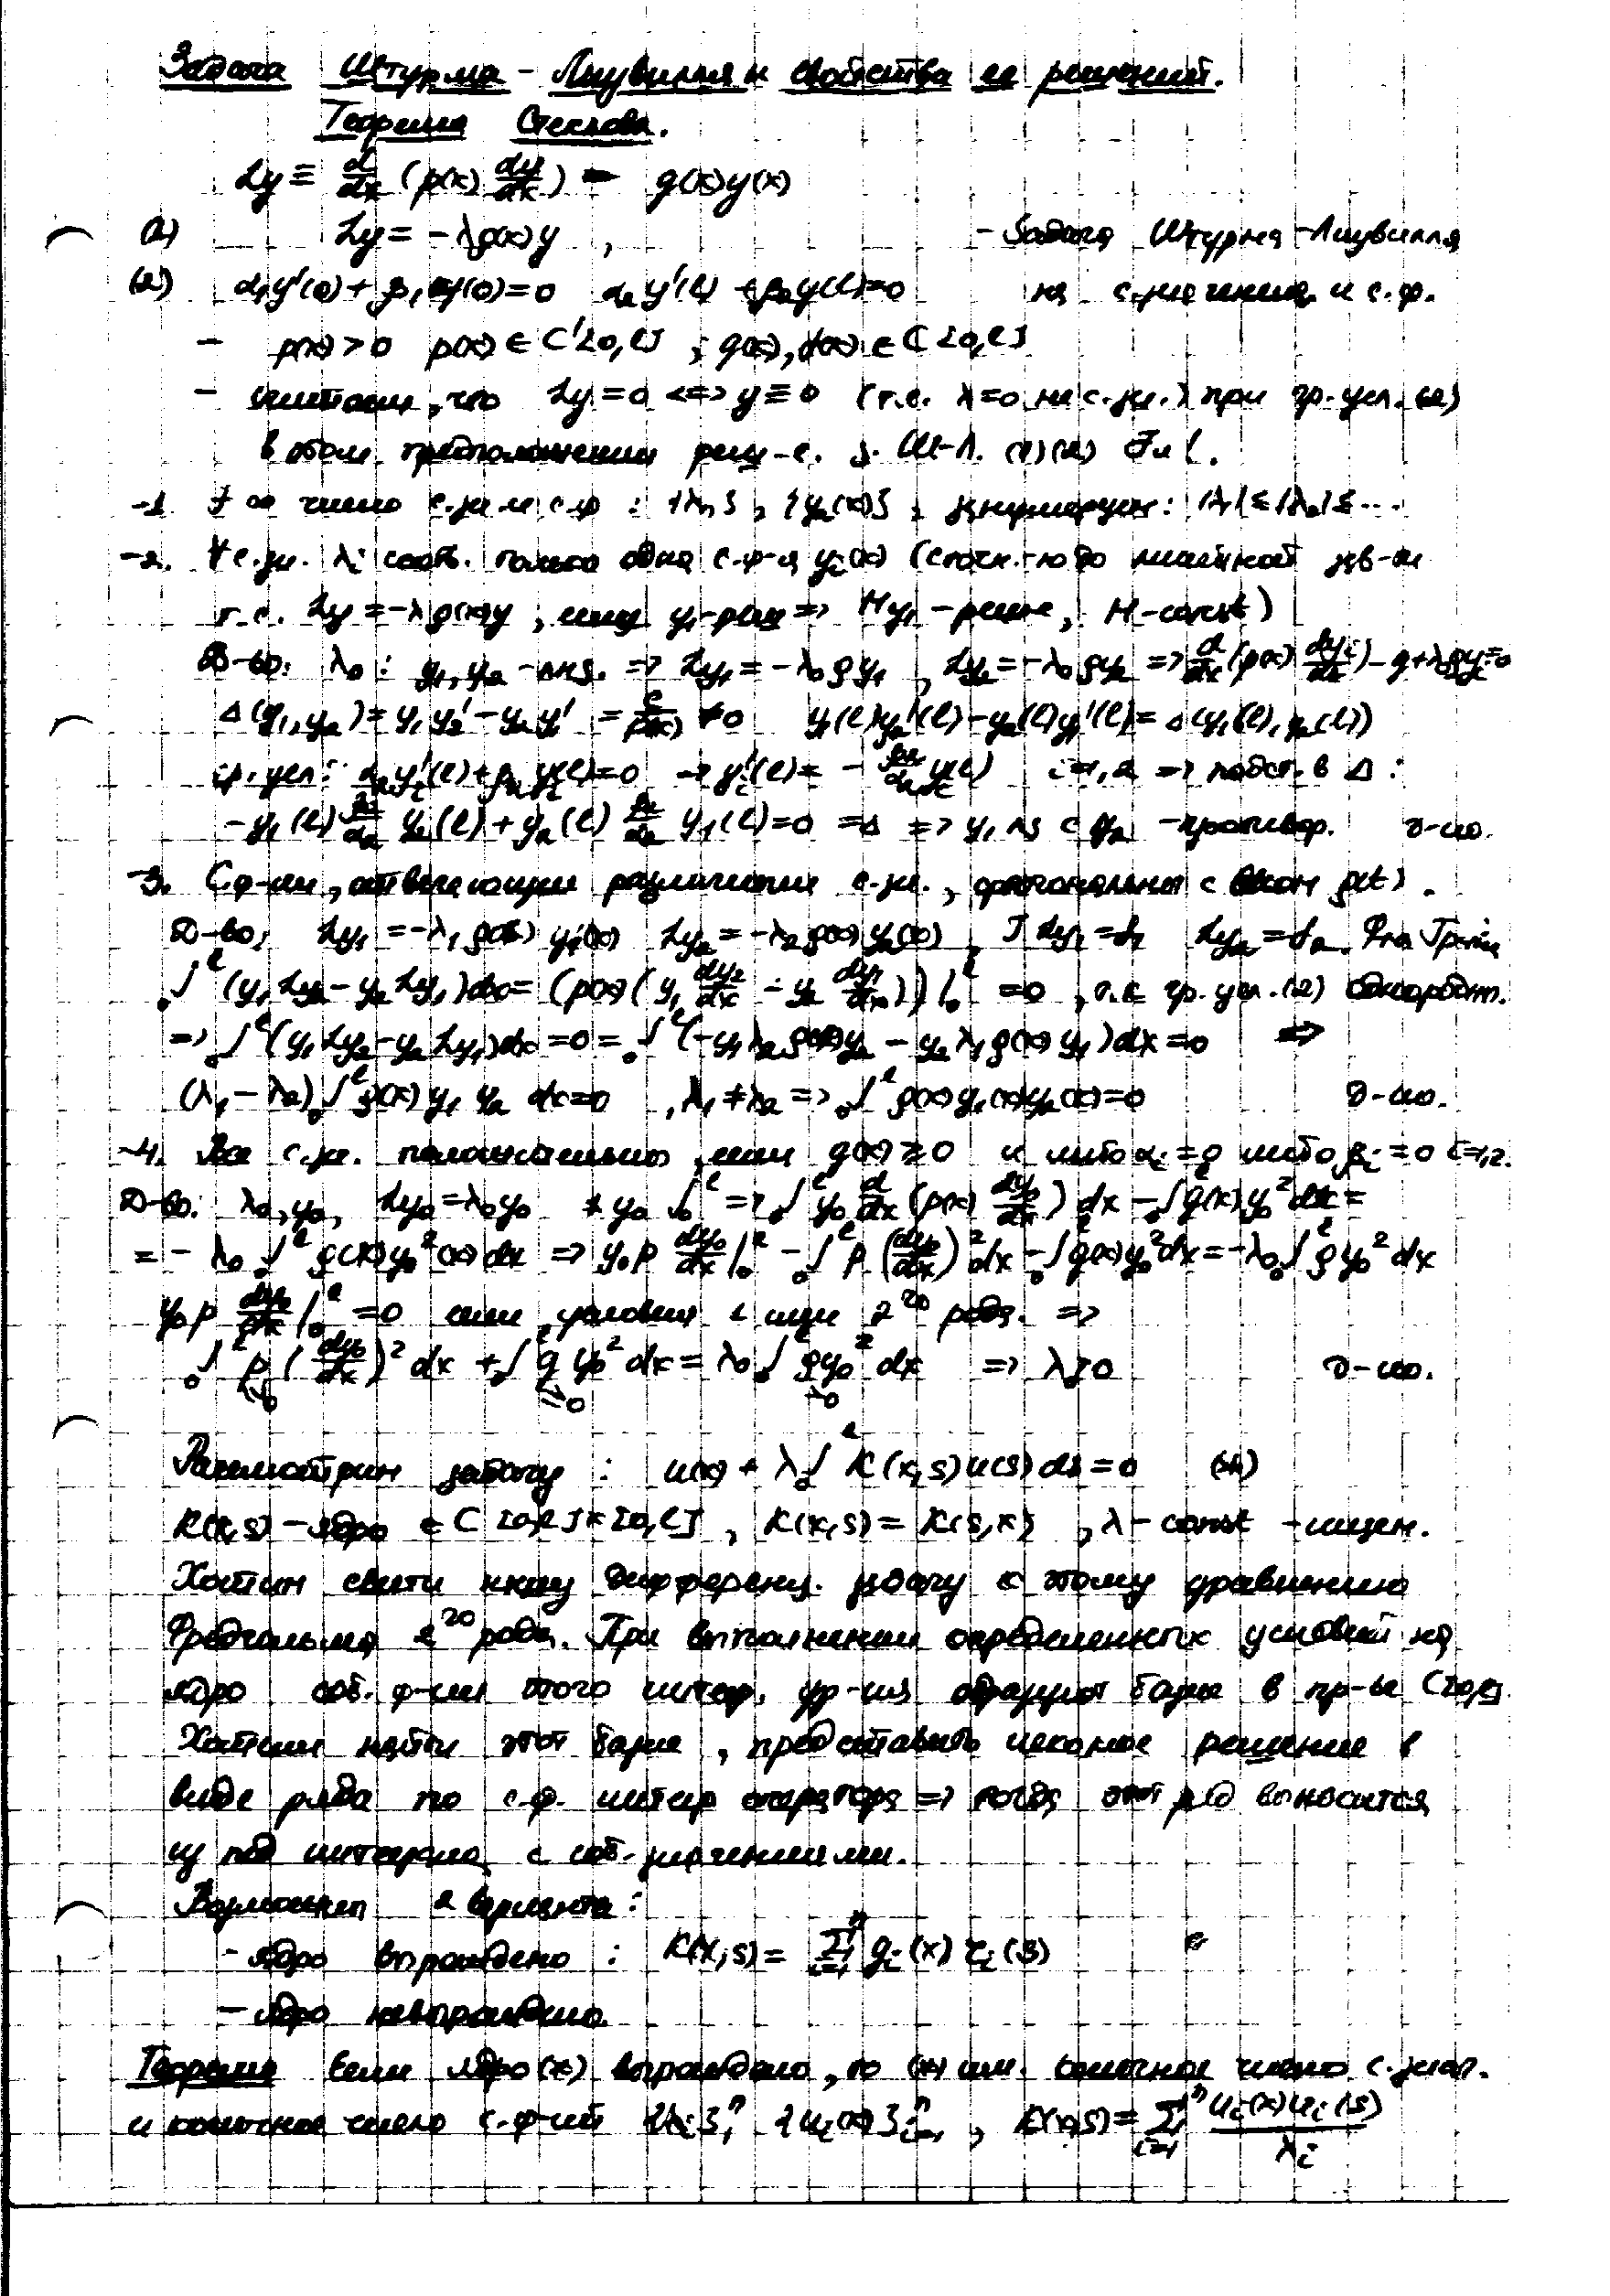 Задача Штурма-Лиувилля и свойства ее решений.
Теорема Стеклова.
Ly ≡ d/dx (p(x) dy/dx) - q(x)y(x)
(1) Ly = -λρ(x)y , - Задача Штурма-Лиувилля
(2) α₁y'(0) + β₁y(0)=0 α₂y'(l) + β₂y(l)=0 на с.значения и с.ф.
- p(x)>0 p(x) ∈ C'[0,l] ; q(x), ρ(x) ∈ C[0,l]
- считаем, что Ly=0 <=> y≡0 (т.е. λ=0 не с.зн.) при гр.усл. (2)
в этом предположении реш-е з. Ш-Л. (1)(2)
-1. ∃ ∞ число с.зн. и с.ф : {λₙ}, {yₙ(x)}, занумеруем: |λ₁|≤|λ₂|≤...
-2. ∀ с.зн. λᵢ соотв. только одна с.ф-я yᵢ(x) (с точн-ю до линейной зав-ти
т.е. Ly = -λρ(x)y, если y₁-реш => Hy₁ - реше, H-const)
Д-во: λ₀ : y₁, y₂ - лнз. => Ly₁ = -λ₀ρy₁ , Ly₂ = -λ₀ρy₂ => d/dx (p(x) dyᵢ/dx) - q+λ₀ρyᵢ=0
Δ(y₁,y₂) = y₁y₂' - y₂y₁' = c/p(x) ≠0 y₁(l)y₂'(l) - y₂(l)y₁'(l) = Δ(y₁(l), y₂(l))
гр.усл: α₂yᵢ'(l) + β₂yᵢ(l)=0 → yᵢ'(l) = - β₂/α₂ yᵢ(l) i=1,2 => подст. в Δ :
-y₁(l) β₂/α₂ y₂(l) + y₂(l) β₂/α₂ y₁(l)=0 =Δ => y₁ лз с y₂ - противор. д-но.
-3. С.ф-ии, отвечающие различным с.зн., ортогональны с весом ρ(t).
Д-во: Ly₁ = -λ₁ρ(x) y₁(x) Ly₂ = -λ₂ρ(x) y₂(x) , ] Ly₁=f₁ Ly₂=f₂. Ф-ла Грина
₀∫ˡ (y₁Ly₂ - y₂Ly₁)dx = (p(x)(y₁ dy₂/dx - y₂ dy₁/dx))|₀ˡ =0 , т.к гр.усл.(2)
=> ₀∫ˡ (y₁Ly₂ - y₂Ly₁)dx =0 = ₀∫ˡ (-y₁λ₂ρ(x)y₂ - y₂λ₁ρ(x)y₁)dx=0 =>
(λ₁-λ₂) ₀∫ˡ ρ(x) y₁ y₂ dx=0 , λ₁≠λ₂ => ₀∫ˡ ρ(x)y₁(x)y₂(x)=0 д-но.
-4. Все с.зн. положительно, если q(x) ≥ 0 и либо αᵢ=0 либо βᵢ=0 i=1,2.
Д-во: λ₀, y₀, Ly₀ = λ₀y₀ * y₀ ₀∫ˡ => ₀∫ˡ y₀ d/dx (p(x) dy₀/dx) dx - ₀∫ˡ q(x) y₀² dx =
= - λ₀ ₀∫ˡ ρ(x)y₀²(x)dx => y₀p dy₀/dx |₀ˡ - ₀∫ˡ p (dy₀/dx)² dx - ₀∫ˡ q(x)y₀² dx = -λ₀ ₀∫ˡ ρy₀² dx
y₀p dy₀/dx |₀ˡ =0 если условия 1 или 2го рода. =>
₀∫ˡ p (dy₀/dx)² dx + ₀∫ˡ q y₀² dx = λ₀ ₀∫ˡ ρy₀² dx => λ₀>0 д-но.
>0 ≥0 >0
Рассмотрим задачу : u(x) + λ ₀∫ˡ K(x,s)u(s)ds=0 (*)
K(x,s) - ядро ∈ C [0,l]×[0,l] , K(x,s) = K(s,x) , λ-const
Хотим свести нашу дифференц. задачу к этому уравнению
Фредгольма 2го рода. При выполнении определенных условий на
ядро соб. ф-ии этого интегр. ур-ия образуют базис в пр-ве C[0,l]
Хотим найти этот базис, представить искомое решение в
виде ряда по с.ф. интегр оператора => тогда этот ряд выносится
из под интеграла с соб. значениями.
Возможен 2 варианта :
- ядро вырождено : K(x,s) = Σⁿᵢ₌₁ qᵢ(x) rᵢ(s)
- ядро невырождено.
Теорема Если ядро (*) вырождено, то (*) им. конечное число с.знач.
и конечное число с.ф-ий {λᵢ}₁ⁿ {uᵢ(x)}ⁿᵢ₌₁ , K(x,s) = Σⁿᵢ₌₁ uᵢ(x)uᵢ(s)/λᵢ